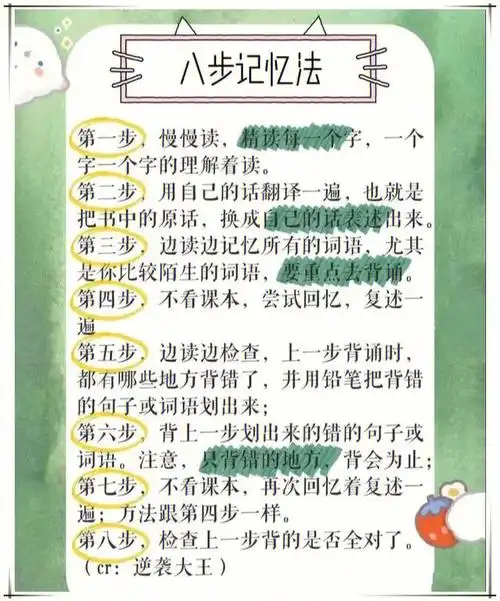 八步记忆法
第一步，慢慢读，精读每一个字，一个
字一个字的理解着读。
第二步，用自己的话翻译一遍，也就是
把书中的原话，换成自己的话表述出来。
第三步，边读边记忆所有的词语，尤其
是你比较陌生的词语，要重点去背诵。
第四步，不看课本，尝试回忆，复述一
遍
第五步，边读边检查，上一步背诵时，
都有哪些地方背错了，并用铅笔把背错
的句子或词语划出来；
第六步，背上一步划出来的错的句子或
词语。注意，只背错的地方，背会为止；
第七步，不看课本，再次回忆着复述一
遍；方法跟第四步一样。
第八步，检查上一步背的是否全对了。
（cr：逆袭大王）